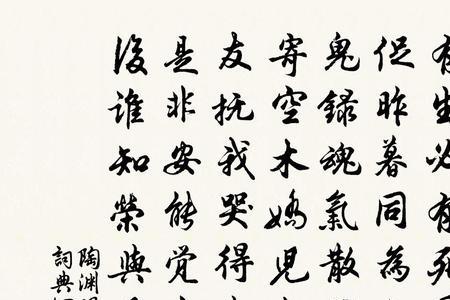 有生必有死
促昨暮同為
鬼錄魂氣散
寄空木嬌兒
友抚我哭得
是非安能覚
後誰知榮與
陶淵
詞典